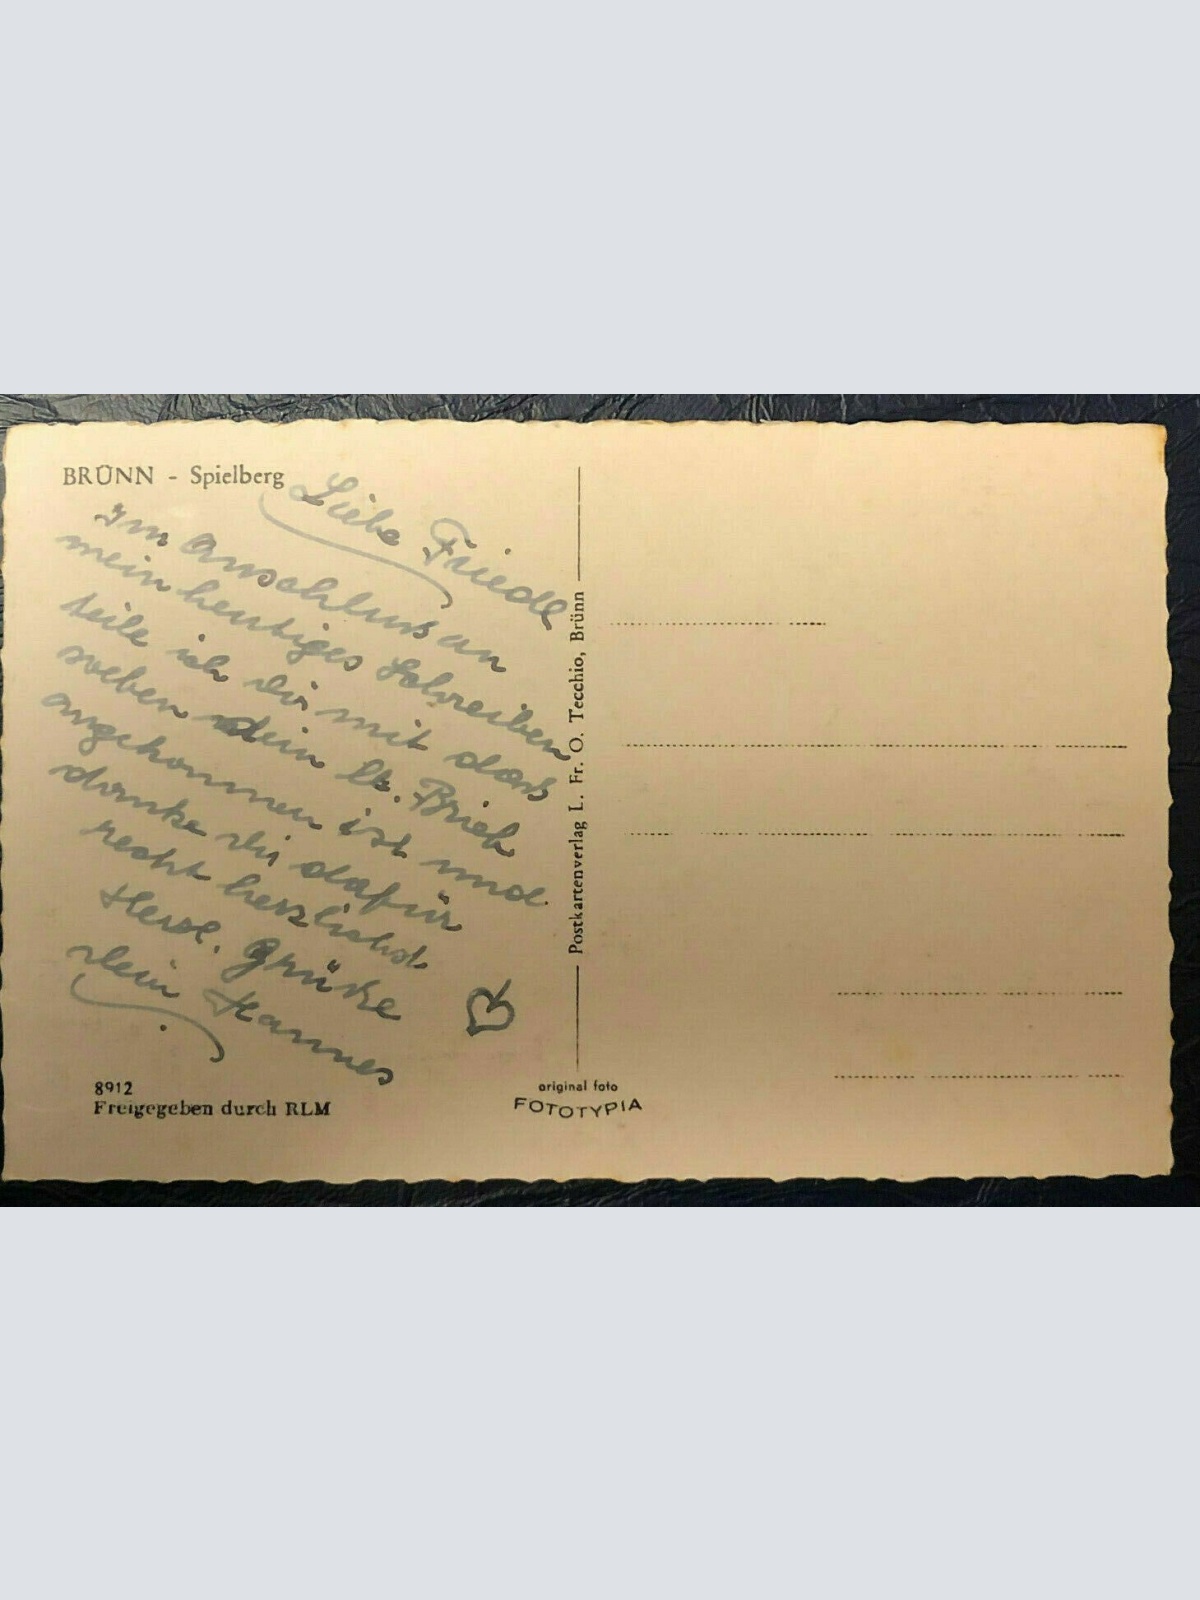 BRÜNN - Spielberg
Liebe Friedl
Im Anschluss an
mein heutiges Schreiben
teile ich dir mit dass
soeben dein lb. Brief
angekommen ist und
danke dir dafür
recht herzlichst
Herzl. Grüsse
dein Hannes
8912
Freigegeben durch RLM
Postkartenverlag L. Fr. O. Tecchio, Brünn
original foto
FOTOTYPIA